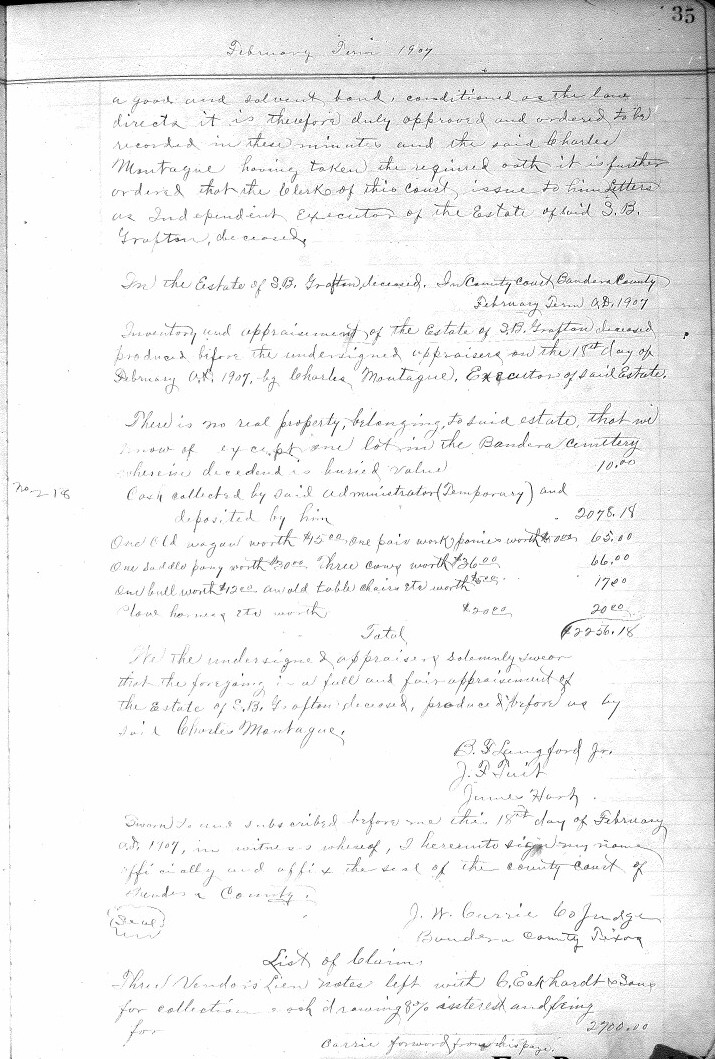 35
February Term 1907
a good and solvent bond, conditioned as the law
directs it is therefore duly approved and ordered to be
recorded in these minutes and the said Charles
Montague having taken the required oath it is further
ordered that the Clerk of this Court issue to him Letters
as Independent Executor of the Estate of said S.B.
Grafton, deceased,
In the Estate of S.B. Grafton, deceased. In County Court Bandera County
February Term A.D. 1907
Inventory and appraisement of the Estate of S.B. Grafton deceased
produced before the undersigned appraisers on the 18th day of
February A.D. 1907, by Charles Montague, Executor of said Estate.
There is no real property, belonging, to said estate, that we
know of except one lot in the Bandera cemetery
wherein decedend is buried value 10.00
No 218
Cash collected by said administrator (Temporary) and
deposited by him 2078.18
One Old wagon worth $15.00 one pair work ponies worth 65.00
One saddle pony worth $30.00 Three cows worth $36.00 66.00
One bull worth $12.00 an old table chairs etc worth $5.00 17.00
harness etc worth $20.00 20.00
Total $2256.18
We the undersigned appraisers solemnly swear
that the foregoing is a full and fair appraisement of
the Estate of S.B. Grafton deceased, produced before us by
said Charles Montague.
B. F. Langford Jr.
J. F. Tait
James Hark
Sworn to and subscribed before me this 18th day of February
A.D. 1907, in witness whereof, I hereunto sign my name
officially and affix the seal of the county court of
Bandera County.
(Seal)
J. W. Currie Co Judge
Bandera County Texas
List of Claims
Three Vendors Lien notes left with C. Eckhardt & Sons
for collection each drawing 8% interest and being
for 2700.00
Carrie forward from this page.